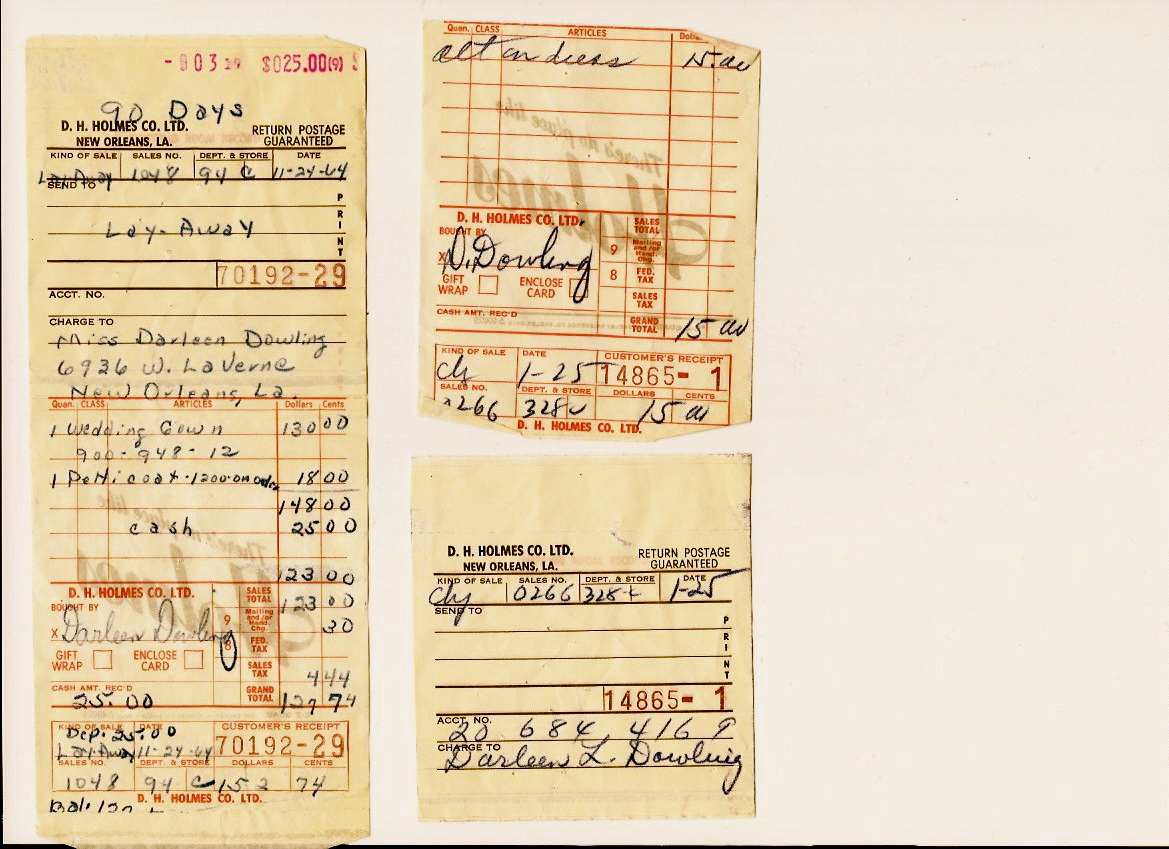 -003 29 $025.00(9)
90 Days
D. H. HOLMES CO. LTD.
NEW ORLEANS, LA.
RETURN POSTAGE
GUARANTEED
KIND OF SALE SALES NO. DEPT. & STORE DATE
Lay-Away 1048 94 C 11-24-64
SEND TO
PRINT
Lay-Away
70192-29
ACCT. NO.
CHARGE TO
Miss Darleen Dowling
6936 W. LaVerne
New Orleans, La.
Quan. CLASS ARTICLES Dollars Cents
1 Wedding Gown 130 00
900-948-12
1 Petticoat 18 00
148 00
cash 25 00
123 00
D. H. HOLMES CO. LTD. SALES TOTAL 123 00
BOUGHT BY
X Darleen Dowling
9 Mailing and/or Hand. Chg. 30
8 FED. TAX
GIFT WRAP ENCLOSE CARD SALES TAX 4 44
CASH AMT. REC'D GRAND TOTAL 127 74
25.00
KIND OF SALE DATE CUSTOMER'S RECEIPT
Dep. 25.00
Lay-Away 11-24-64 70192-29
SALES NO. DEPT. & STORE DOLLARS CENTS
1048 94 C 152 74
D. H. HOLMES CO. LTD.
Quan. CLASS ARTICLES
alt on dress 15.00
There's no place like
Holmes
D. H. HOLMES CO. LTD. SALES TOTAL
BOUGHT BY
X D. Dowling
9 Mailing and/or Hand. Chg.
8 FED. TAX
GIFT WRAP ENCLOSE CARD SALES TAX
CASH AMT. REC'D GRAND TOTAL 15 00
KIND OF SALE DATE CUSTOMER'S RECEIPT
Chg 1-25 14865-1
SALES NO. DEPT. & STORE DOLLARS CENTS
0266 328 15 00
D. H. HOLMES CO. LTD.
D. H. HOLMES CO. LTD.
NEW ORLEANS, LA.
RETURN POSTAGE
GUARANTEED
KIND OF SALE SALES NO. DEPT. & STORE DATE
Chg 0266 328 1-25
SEND TO
PRINT
14865-1
ACCT. NO.
20 684 416 9
CHARGE TO
Darleen L. Dowling